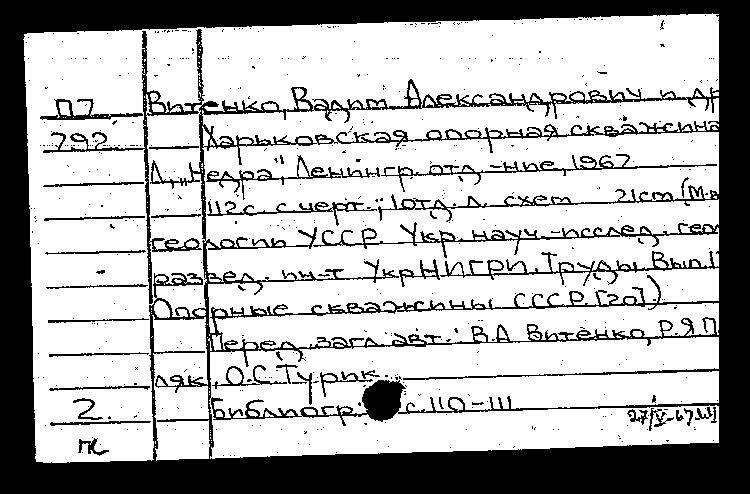 П7 Витенко, Вадим Александрович и др
792 Харьковская опорная скважина
Л, „Недра", Ленингр. отд-ние, 1967
112с. с черт.; 1 отд. л. схем 21cm (М-в
геологии УССР. Укр. науч.-исслед. геол
развед. ин-т УкрНИГРИ. Труды. Вып. 1
Опорные скважины СССР [20])
Перед загл. авт.: В.А Витенко, Р.Я П
ляк, О.С. Турик
2. Библиогр. с. 110-111
27/V-67
ПК